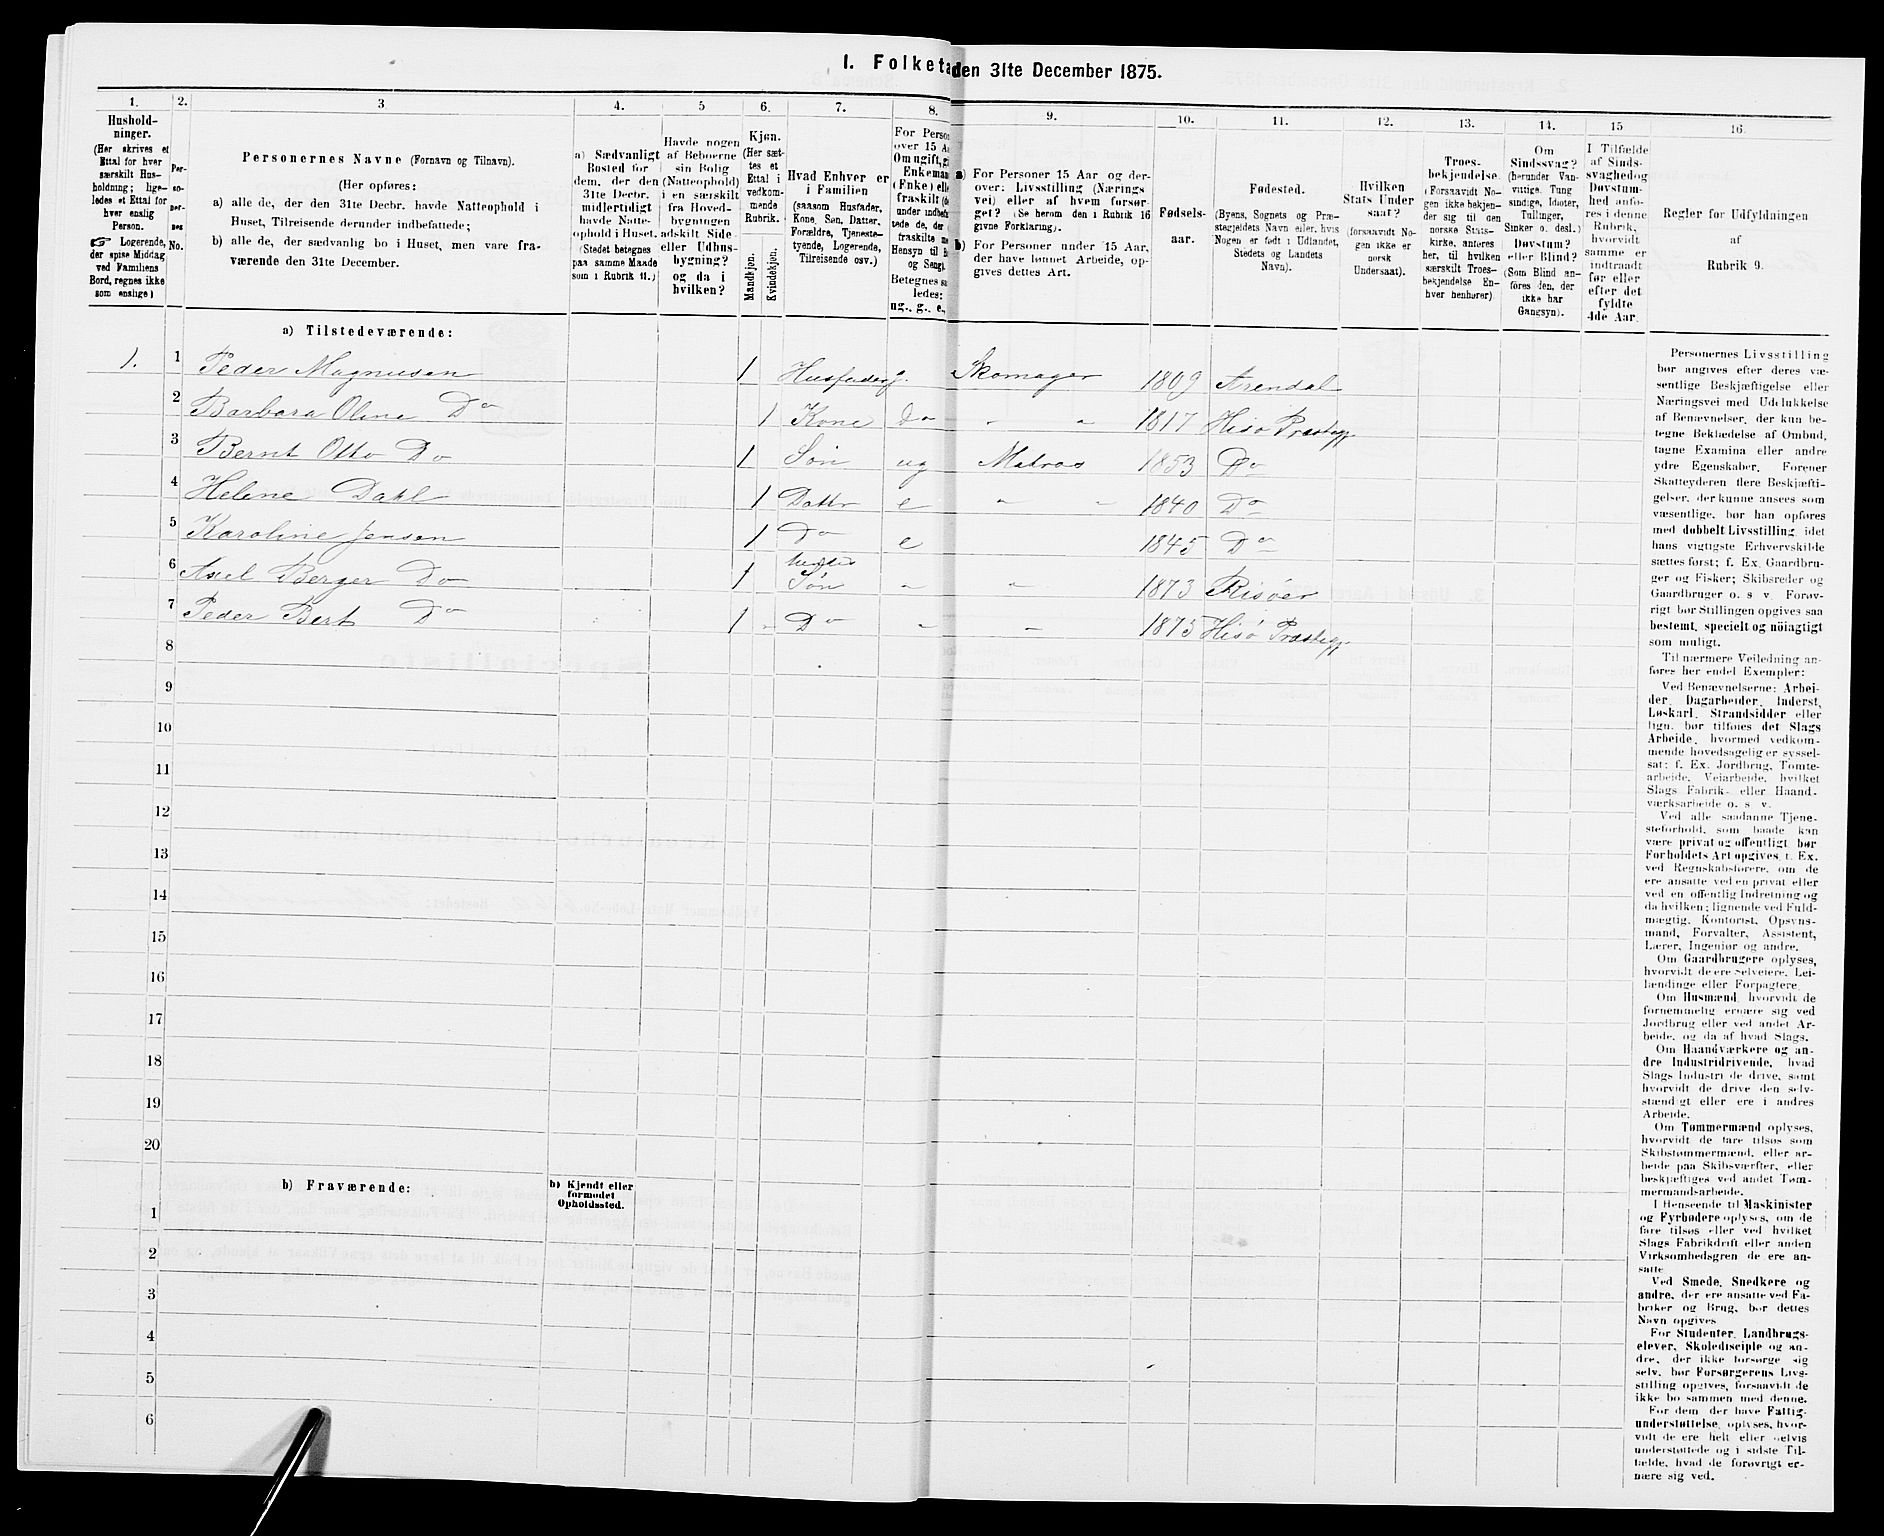 I. Folketa den 31te December 1875.
1. 2. 3 4. 5 6. 7. 8. 9. 10. 11. 12. 13. 14. 15 16.
Hushold-
ninger.
(Her skrives et
Ettal for hver
særskilt Hus-
holdning; lige-
ledes et Ettal for
hver enslig
Person.
☞ Logerende,
der spise Middag
ved Familiens
Bord, regnes ikke
som enslige)
Per-
so-
ner-
nes
No.
Personernes Navne (Fornavn og Tilnavn).
(Her opføres:
a) alle de, der den 31te Decbr. havde Natteophold i
Huset, Tilreisende derunder indbefattede;
b) alle de, der sædvanlig bo i Huset, men vare fra-
værende den 31te December.
a) Sædvanligt
Bosted for
dem, der den
31te Decbr.
midlertidigt
havde Natte-
ophold i Huset.
(Stedet betegnes
paa samme Maade
som i Rubrik 11.)
Havde nogen
af Beboerne
sin Bolig
(Natteophold)
i en særskilt
fra Hoved-
bygningen
adskilt Side-
eller Udhus-
bygning?
og da i
hvilken?
Kjøn.
(Her sæt-
tes et
Ettal i
vedkom-
mende
Rubrik.
Mandkjøn.
Kvindekjøn.
Hvad Enhver er
i Familien
(saasom Husfader,
Kone, Søn, Datter,
Forældre, Tjeneste-
tyende, Logerende,
Tilreisende osv.)
For Person
over 15 Aa
Om ugift, gi
Enkemand
(Enke) elle
fraskilt (he
under indbef
tede de, der
fraskilte m
Hensyn til B
og Seng).
Betegnes sa
ledes:
ug., g., e.,
a) For Personer 15 Aar og der-
over: Livsstilling (Nærings
vei) eller af hvem forsør-
get? (Se herom den i Rubrik 16
givne Forklaring).
b) For Personer under 15 Aar,
der have lønnet Arbeide, op-
gives dettes Art.
Fødsels-
aar.
Fødested.
(Byens, Sognets og Præ-
stegjeldets Navn eller, hvis
Nogen er født i Udlandet,
Stedets og Landets
Navn).
Hvilken
Stats Under
saat?
(forsaavidt No-
gen ikke er
norsk
Undersaat).
Troes-
bekjendelse.
(Forsaavidt No-
gen ikke bekjen-
der sig til den
norske Stats-
kirke, anføres
her, til hvilken
særskilt Troes-
bekjendelse En-
hver henhører)
Om
Sindssvag?
(herunder Van-
vittige, Tung
sindige, Idioter,
Tullinger,
Sinker o. desl.)
Døvstum?
eller Blind?
(Som Blind an-
føres den, der
ikke har
Gangsyn).
I Tilfælde
af Sinds-
svaghed og
Døvstum-
hed anfø-
res i denne
Rubrik,
hvorvidt
samme er
indtraadt
før eller
efter det
fyldte
4de Aar.
Regler for Udfyldningen
af
Rubrik 9.
a) Tilstedeværende:
1. 1 Peder Magnusen 1 Husfader g. Skomager 1809 Arendal
2 Barbara Oline Do 1 Kone Do " " 1817 Hisø Præstegj
3 Bernt Otto Do 1 Søn ug Matros 1853 Do
4 Helene Dahl 1 Dattr e " " 1840 Do
5 Karoline Jensen 1 Do e 1845 Do
6 Axel Berger Do 1 Søn " " 1873 Risøer
7 Peder Bert Do 1 Do " " 1875 Hisø Præstegj
8
9
10
11
12
13
14
15
16
17
18
19
20
b) Fraværende:
b) Kjendt eller
formodet
Opholdssted.
1
2
3
4
5
6
Personernes Livsstilling
bør angives efter deres væ-
sentlige Beskjæftigelse eller
Næringsvei med Udelukkelse
af Benævnelser, der kun be-
tegne Beklædelse af Ombud,
tagne Examina eller andre
ydre Egenskaber. Forener
Skatteyderen flere Beskjæfti-
gelser, der kunne ansees som
væsentlige, bør han opføres
med dobbelt Livsstilling, idet
hans vigtigste Erhvervskilde
sættes først; f. Ex. Gaardbru-
ger og Fisker; Skibsreder og
Gaardbruger o. s v. Forøv-
rigt bør Stillingen opgives saa
bestemt, specielt og nöiagtigt
som muligt.
Til nærmere Veiledning an-
føres her endel Exempler:
Ved Benævnelserne: Arbei-
der, Dagarbeider, Inderst,
Løskarl, Strandsidder eller
lign. bør tilføies det Slags
Arbeide, hvormed vedkom-
mende hovedsagelig er syssel-
sat; f. Ex. Jordbrug, Tomte-
arbeide, Veiarbeide, hvilket
Slags Fabrik- eller Haand-
værksarbeide o. s v.
Ved alle saadanne Tjene-
steforhold, som baade kan
være privat og offentligt, bør
Forholdets Art opgives, t. Ex.
ved Regnskabsførere, om de
ere ansatte ved en privat eller
ved en offentlig Indretning og
da hvilken; lignende ved Fuld-
mægtig, Kontorist, Opsyns-
mand, Forvalter, Assistent,
Lærer, Ingeniør og andre.
Om Gaardbrugere oplyses,
hvorvidt de ere Selveiere, Lei-
lændinge eller Forpagtere.
Om Husmænd, hvorvidt de
fornemmelig ernære sig ved
Jordbrug eller ved andet Ar-
beide, og da af hvad Slags.
Om Haandværkere og an-
dre Industridrivende, hvad
Slags Industri de drive, samt
hvorvidt de drive den selv-
stændigt eller ere i andres
Arbeide.
Om Tømmermænd oplyses,
hvorvidt de fare tilsøs som
Skibstømmermænd, eller ar-
beide paa Skibsværfter, eller
beskjæftiges ved andet Tøm-
mermandsarbeide.
I Henseende til Maskinister
og Fyrbødere oplyses, om de
fare tilsøs eller ved hvilket
Slags Fabrikdrift eller anden
Virksomhedsgren de ere an-
satte
Ved Smede, Snedkere og
andre, der ere ansatte ved Fa-
briker og Brug, bør dettes
Navn opgives
For Studenter, Landbrugs-
elever, Skoledisciple og an-
dre, der ikke forsørge sig
selv, bør Forsørgerens Livs-
stilling opgives, forsaavidt de
ikke bo sammen med denne.
For dem, der have Fattig-
understøttelse, oplyses, hvor-
vidt de ere helt eller delvis
understøttede og i sidste Til-
fælde, hvad de forøvrigt er-
nære sig ved.